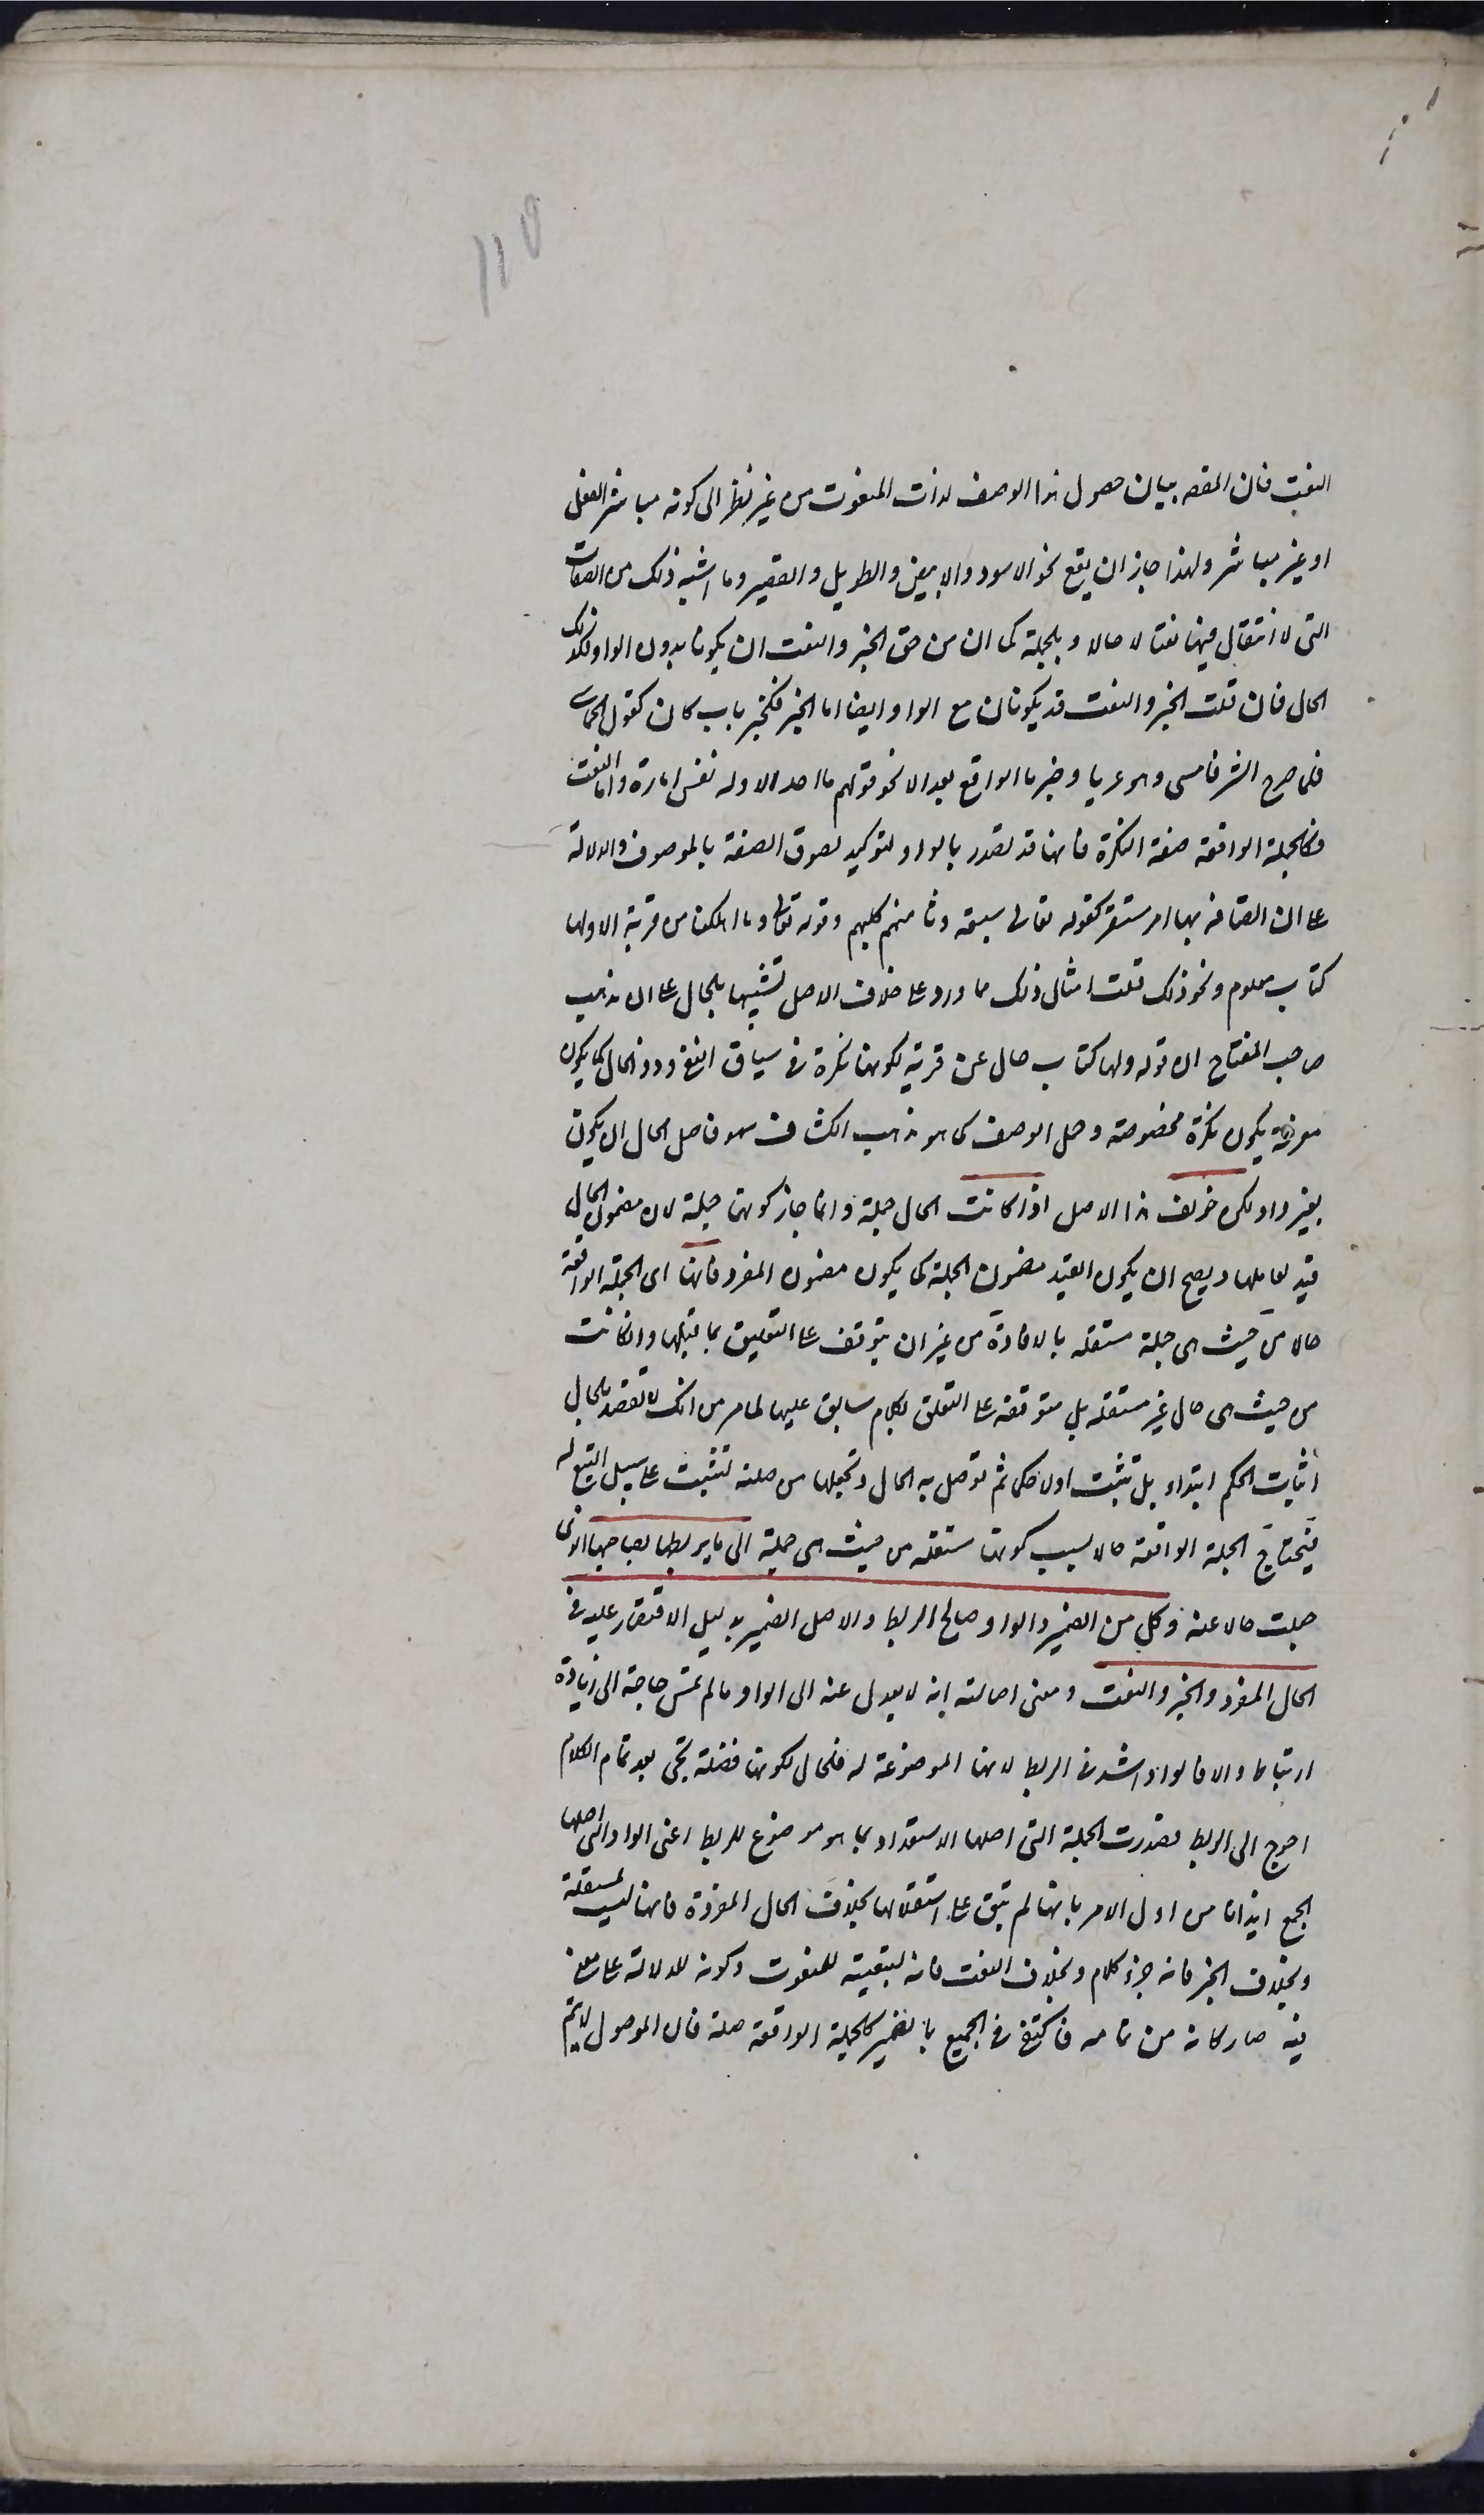 ١١٥
النعت فان المقصد بيان حصول هذا الوصف لذات المنعوت من غير نظر الى كونه مباشر الفعل
او غير مباشر ولهذا جاز ان يقع نحو الاسود والابيض والطويل والقصير وما اشبه ذلك من الصفات
التى لا انتقال فيها نعتا لا حالا وبالجملة كما ان من حق الخبر والنعت ان يكونا بدون الواو فكذلك
الحال فان قلت الخبر والنعت قد يكونان مع الواو ايضا اما الخبر فكخبر باب كان كقول الحماسى
فلما صرح الشر فامسى وهو عريا وخبر ما الواقع بعد الا نحو قولهم ما احد الا وله نفس امارة واما النعت
فكالجملة الواقعة صفة النكرة فانها قد تصدر بالواو لتوكيد لصوق الصفة بالموصوف والدلالة
على ان اتصافه بها امر مستقر كقوله تعالى سبعة وثامنهم كلبهم وقوله تعالى وما اهلكنا من قرية الا ولها
كتاب معلوم ونحو ذلك قلت امثال ذلك مما ورد على خلاف الاصل تشبيها بالحال على ان مذهب
صاحب المفتاح ان قوله ولها كتاب حال عن قرية لكونها نكرة فى سياق النفى وذو الحال كما يكون
معرفة يكون نكرة مخصوصة وحمل الوصف كما هو مذهب الكشاف سهو فاصل الحال ان يكون
بغير واو لكن خولف هذا الاصل اذا كانت الحال جملة وانما جاز كونها جملة لان مضمون الحال
قيد لعاملها ويصح ان يكون القيد مضمون الجملة كما يكون مضمون المفرد فانها اى الجملة الواقعة
حالا من حيث هى جملة مستقلة بالافادة من غير ان يتوقف على التعليق بما قبلها وان كانت
من حيث هى حال غير مستقلة بل متوقفة على التعلق بكلام سابق عليها لما مر من انك لا تقصد بالحال
اثبات الحكم ابتداء بل تثبت اولا حكما ثم توصل به الحال وتجعلها من صلته لتثبت على سبيل التبع له
فيحتاج الجملة الواقعة حالا بسبب كونها مستقلة من حيث هى جملة الى ما يربطها بصاحبها الذى
جعلت حالا عنه وكل من الضمير والواو صالح للربط والاصل الضمير بدليل الاقتصار عليه فى
الحال المفرد والخبر والنعت ومعنى اصالته انه لا يعدل عنه الى الواو ما لم تمس حاجة الى زيادة
ارتباط والا فالواو اشد فى الربط لانها الموضوعة له فالحال لكونها فضلة تجئ بعد تمام الكلام
احوج الى الربط فصدرت الجملة التى اصلها الاستقلال بما هو موضوع للربط اعنى الواو التى اصلها
الجمع ايذانا من اول الامر بانها لم تبق على استقلالها بخلاف الحال المفردة فانها ليست بمستقلة
وبخلاف الخبر فانه جزء كلام وبخلاف النعت فانه لتبعيته للمنعوت وكونه للدلالة على معنى
فيه صار كانه من تمامه فاكتفى فى الجميع بالضمير كالجملة الواقعة صلة فان الموصول لا يتم